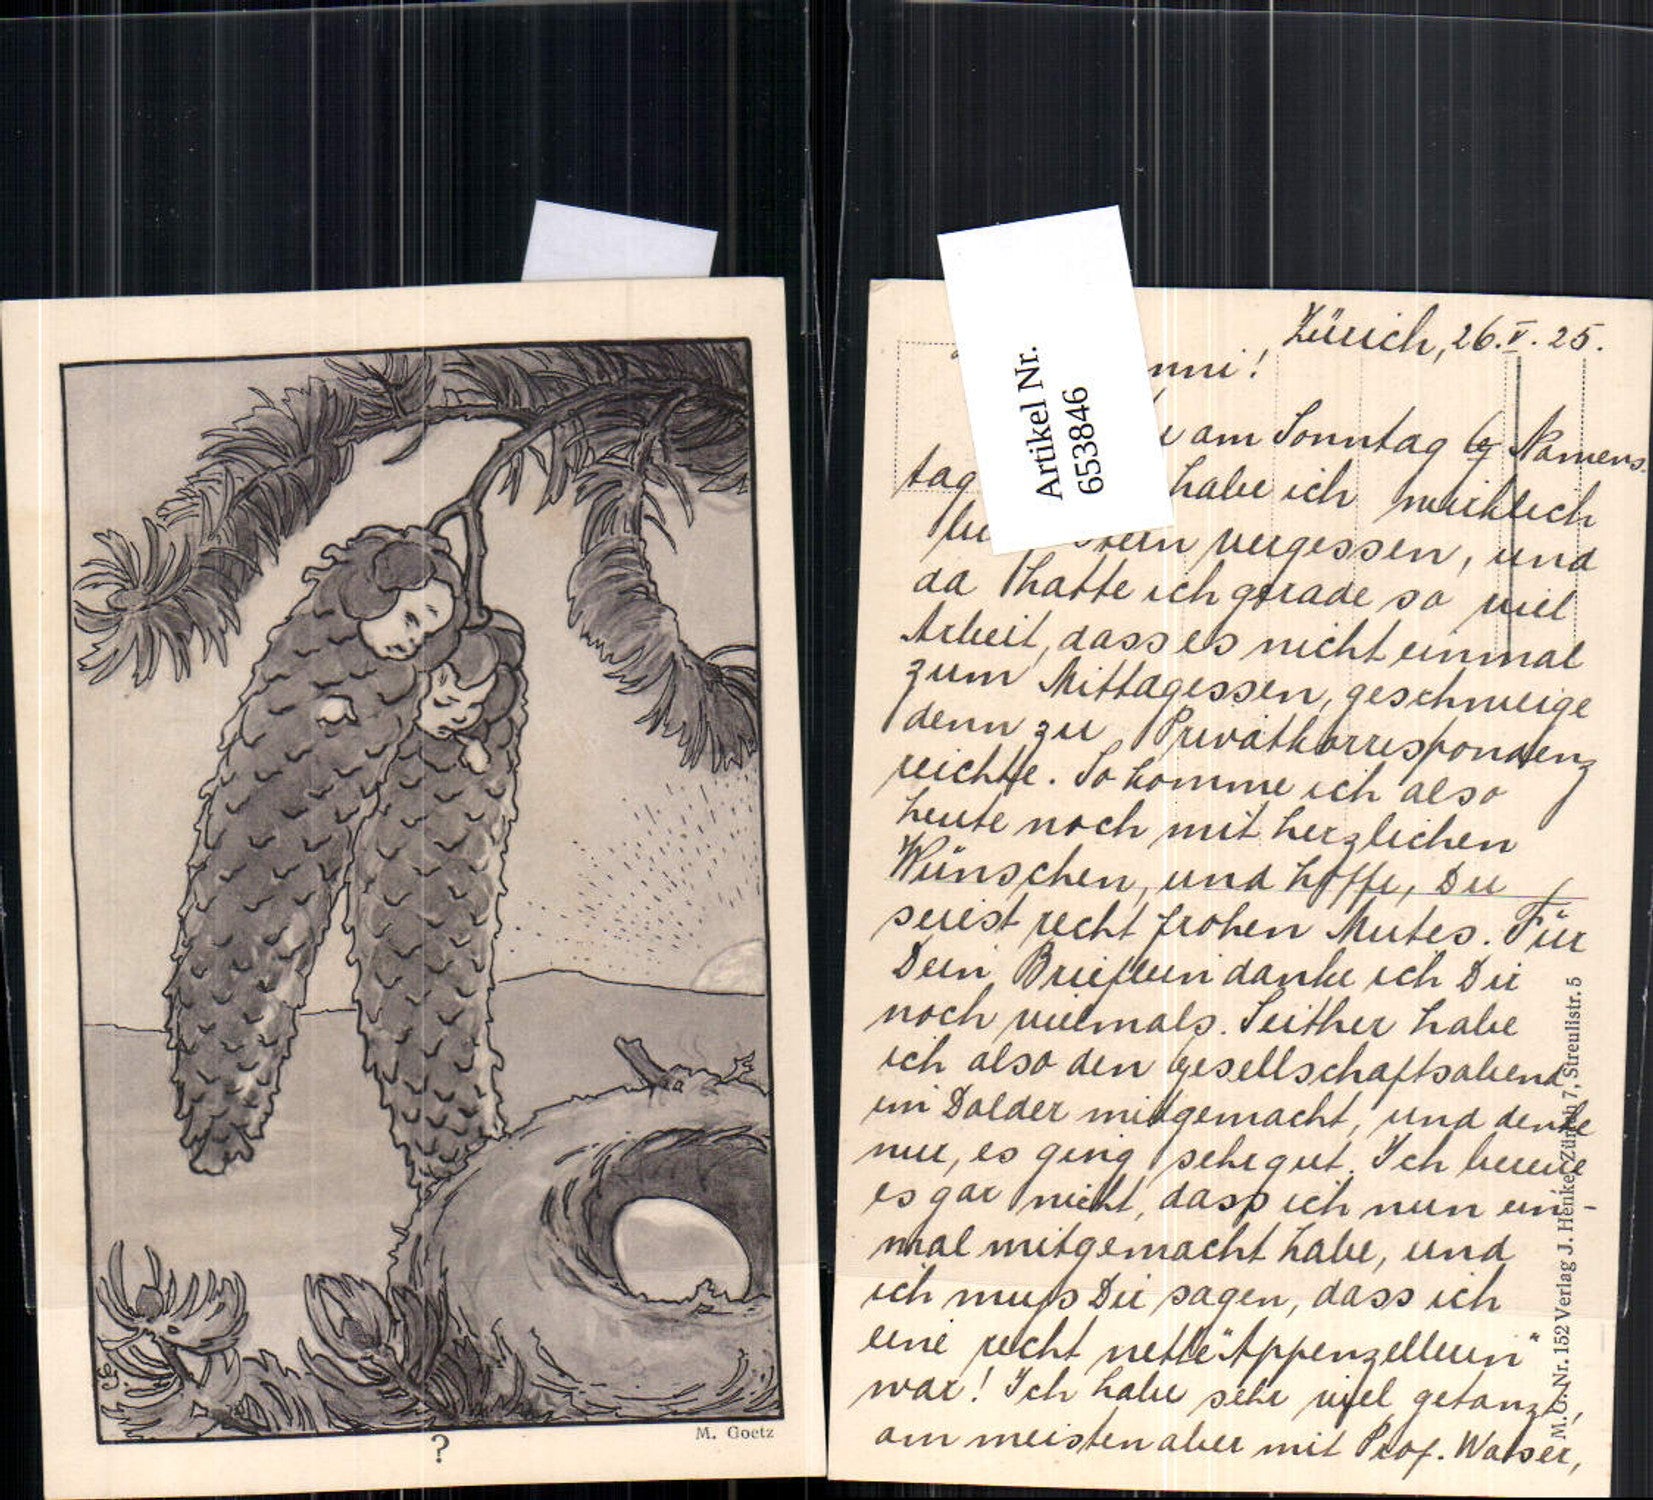 M. Goetz
?
Artikel Nr.
653846
Zürich, 26. V. 25.
nni!
am Sonntag Namens-
tag habe ich wirklich
vergessen, und
da hatte ich gerade so viel
Arbeit, dass es nicht einmal
zum Mittagessen, geschweige
denn zu Privatkorrespondenz
reichte. So komme ich also
heute noch mit herzlichen
Wünschen, und hoffe, Du
seiest recht frohen Mutes. Für
Dein Brieflein danke ich Dir
noch vielmals. Seither habe
ich also den Gesellschaftsabend
im Dolder mitgemacht, und denke
nur, es ging sehr gut. Ich bereue
es gar nicht, dass ich nun ein-
mal mitgemacht habe, und
ich muss Dir sagen, dass ich
eine recht nette "Appenzellerin"
war! Ich habe sehr viel getanzt,
am meisten aber mit Prof. Walser,
M. G. Nr. 152 Verlag J. Henke, Zürich 7, Streulistr. 5